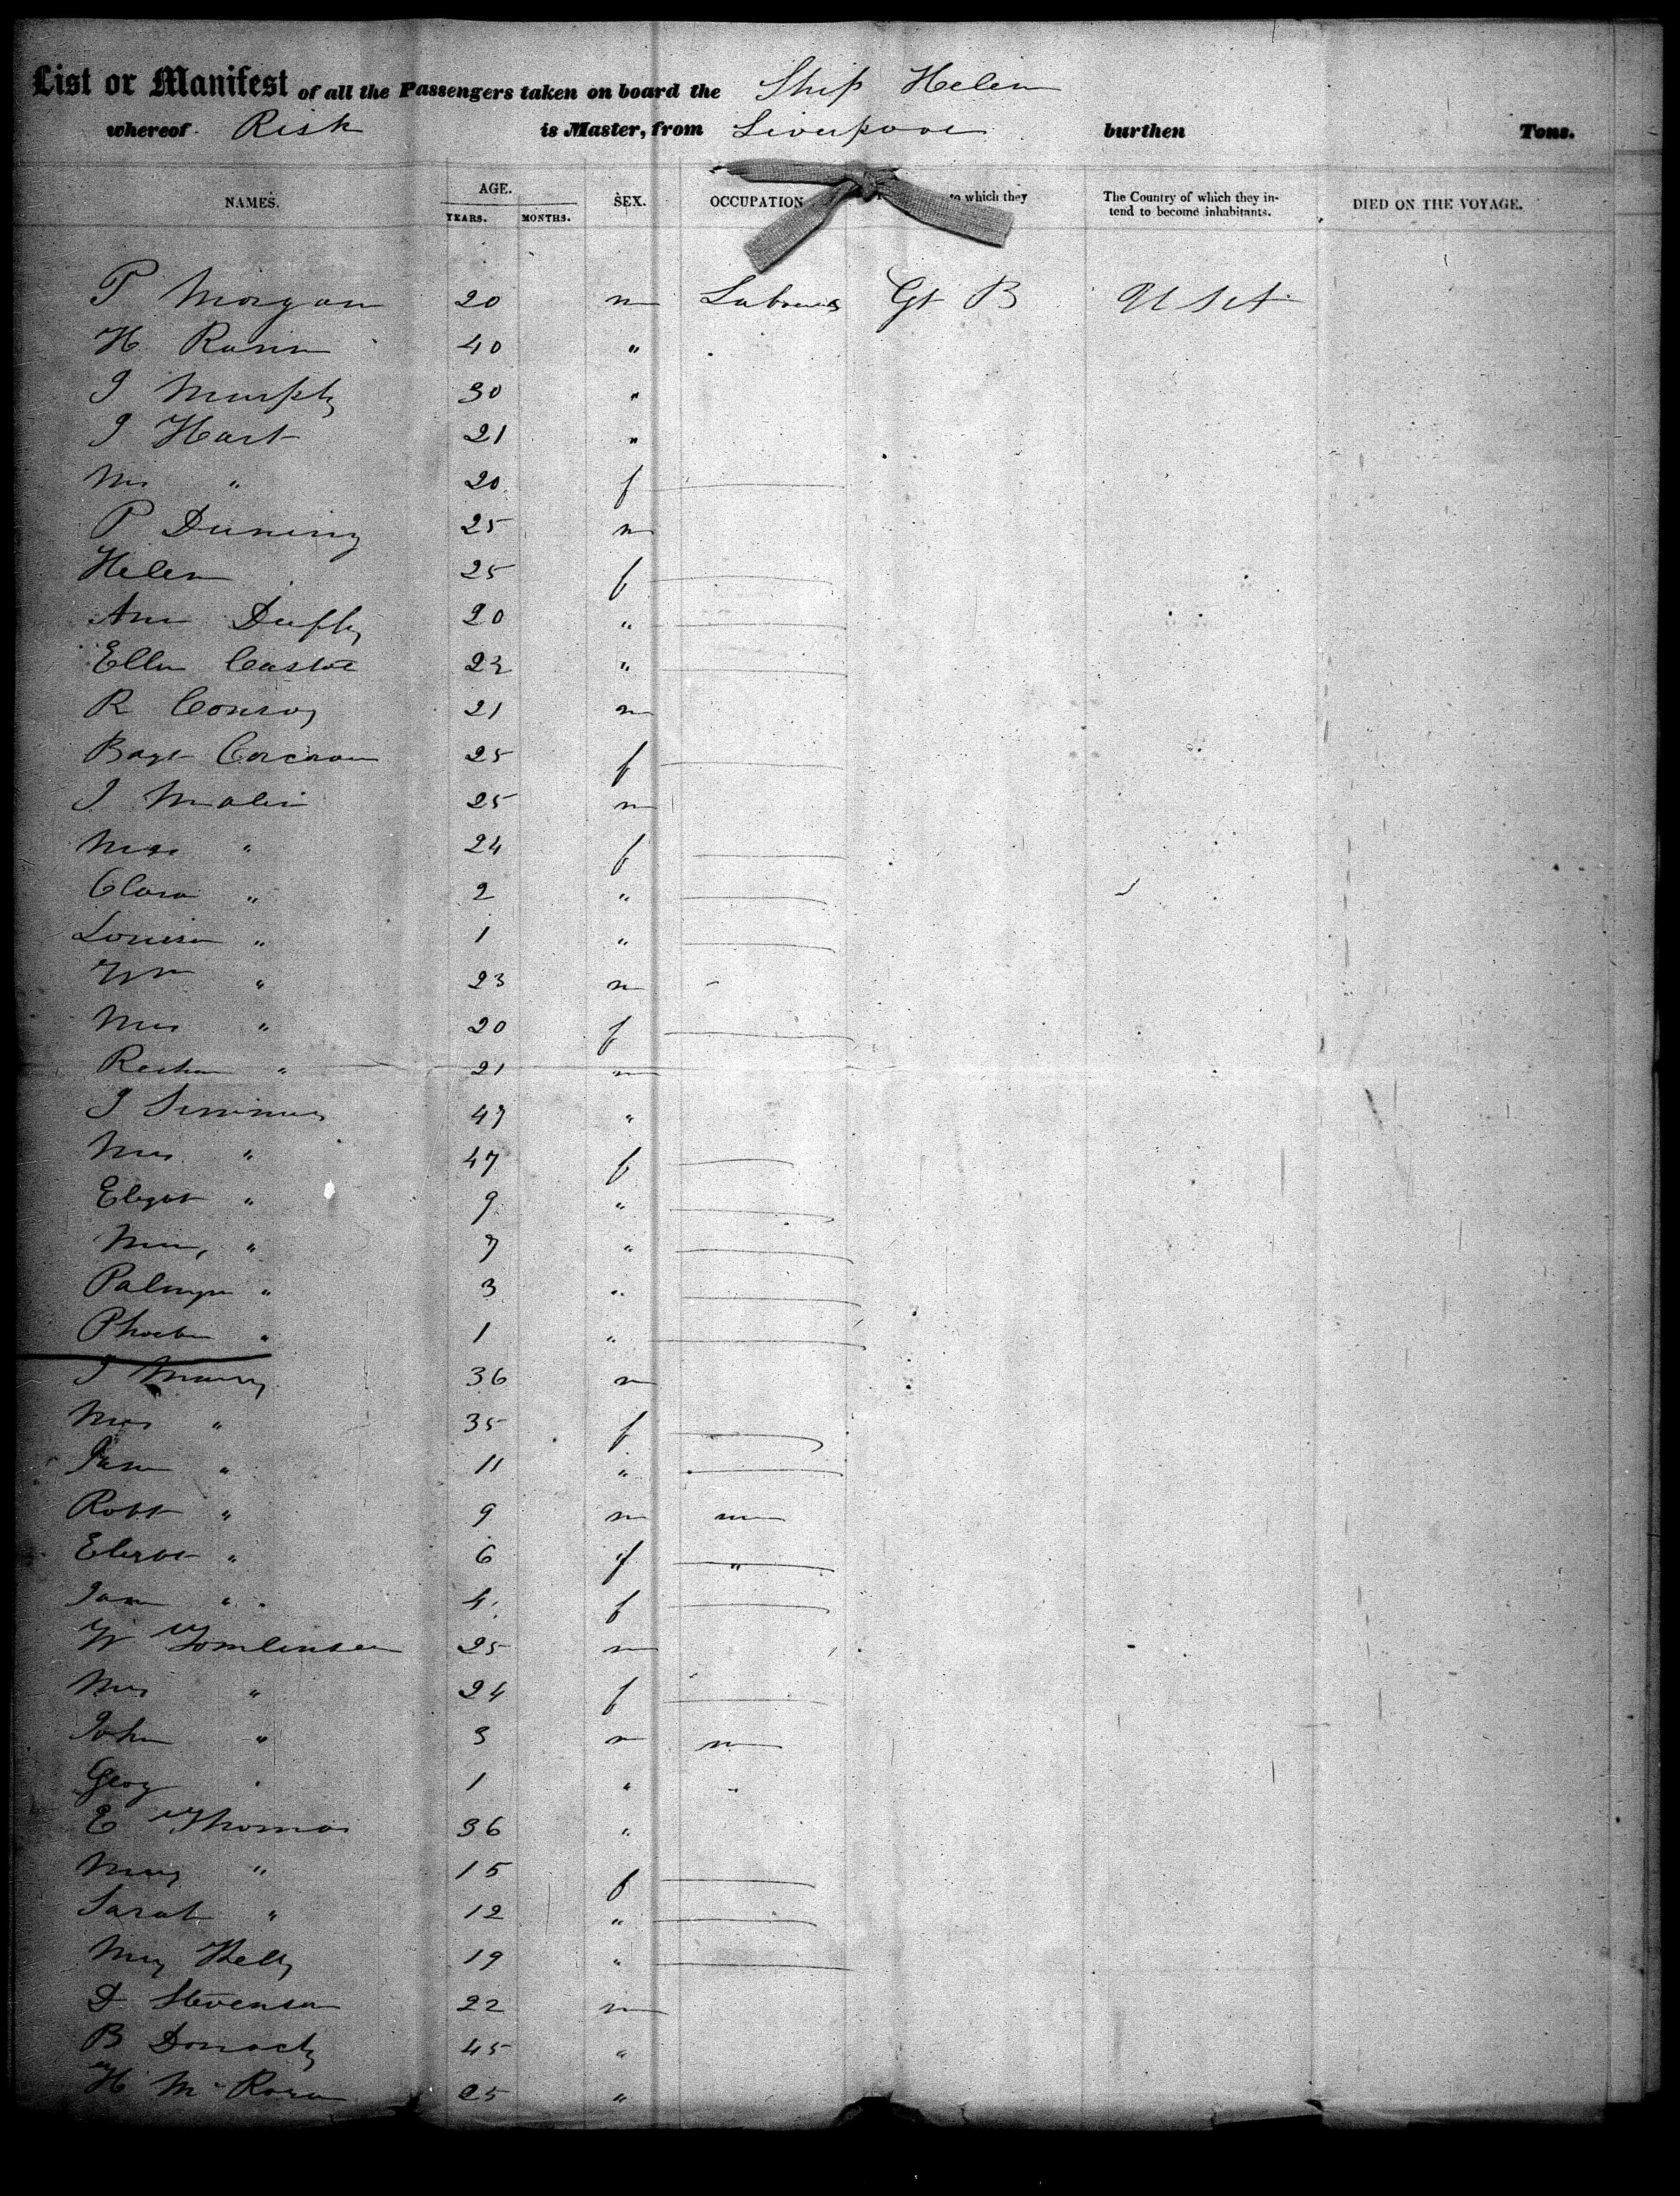 List or Manifest of all the Passengers taken on board the Ship Helen
whereof Risk is Master, from Liverpool burthen Tons.
NAMES. AGE. YEARS. MONTHS. SEX. OCCUPATION to which they The Country of which they intend to become inhabitants. DIED ON THE VOYAGE.
P Morgan 20 m Labourer Gt B U S A
H 40 "
J Murphy 30 "
J Hart 21 "
Mrs " 20 f
P Duning 25 m
Helen 25 f
Ann Duffy 20 "
Ellen 22 "
R Conroy 21 m
Corcoran 25 f
J Malin 25 m
Mrs " 24 f
Clara " 2 "
Louisa " 1 "
Wm " 23 m
Mrs " 20 f
" 21 m
J 47 "
Mrs " 47 f
Elizbt " 9 "
" 7 "
Palmyra " 3 "
Phoebe " 1 "
J 36 m
Mrs " 35 f
" 11 "
Robt " 9 m
Elizbt " 6 f "
Jane " 4 f
W Tomlinson 25 m
Mrs " 24 f
John " 3 m
Georg " 1 "
E Thomas 36 "
Mary " 15 f
Sarah " 12 "
Mary Kelly 19 "
D Stevenson 22 m
B 45 "
H 25 "